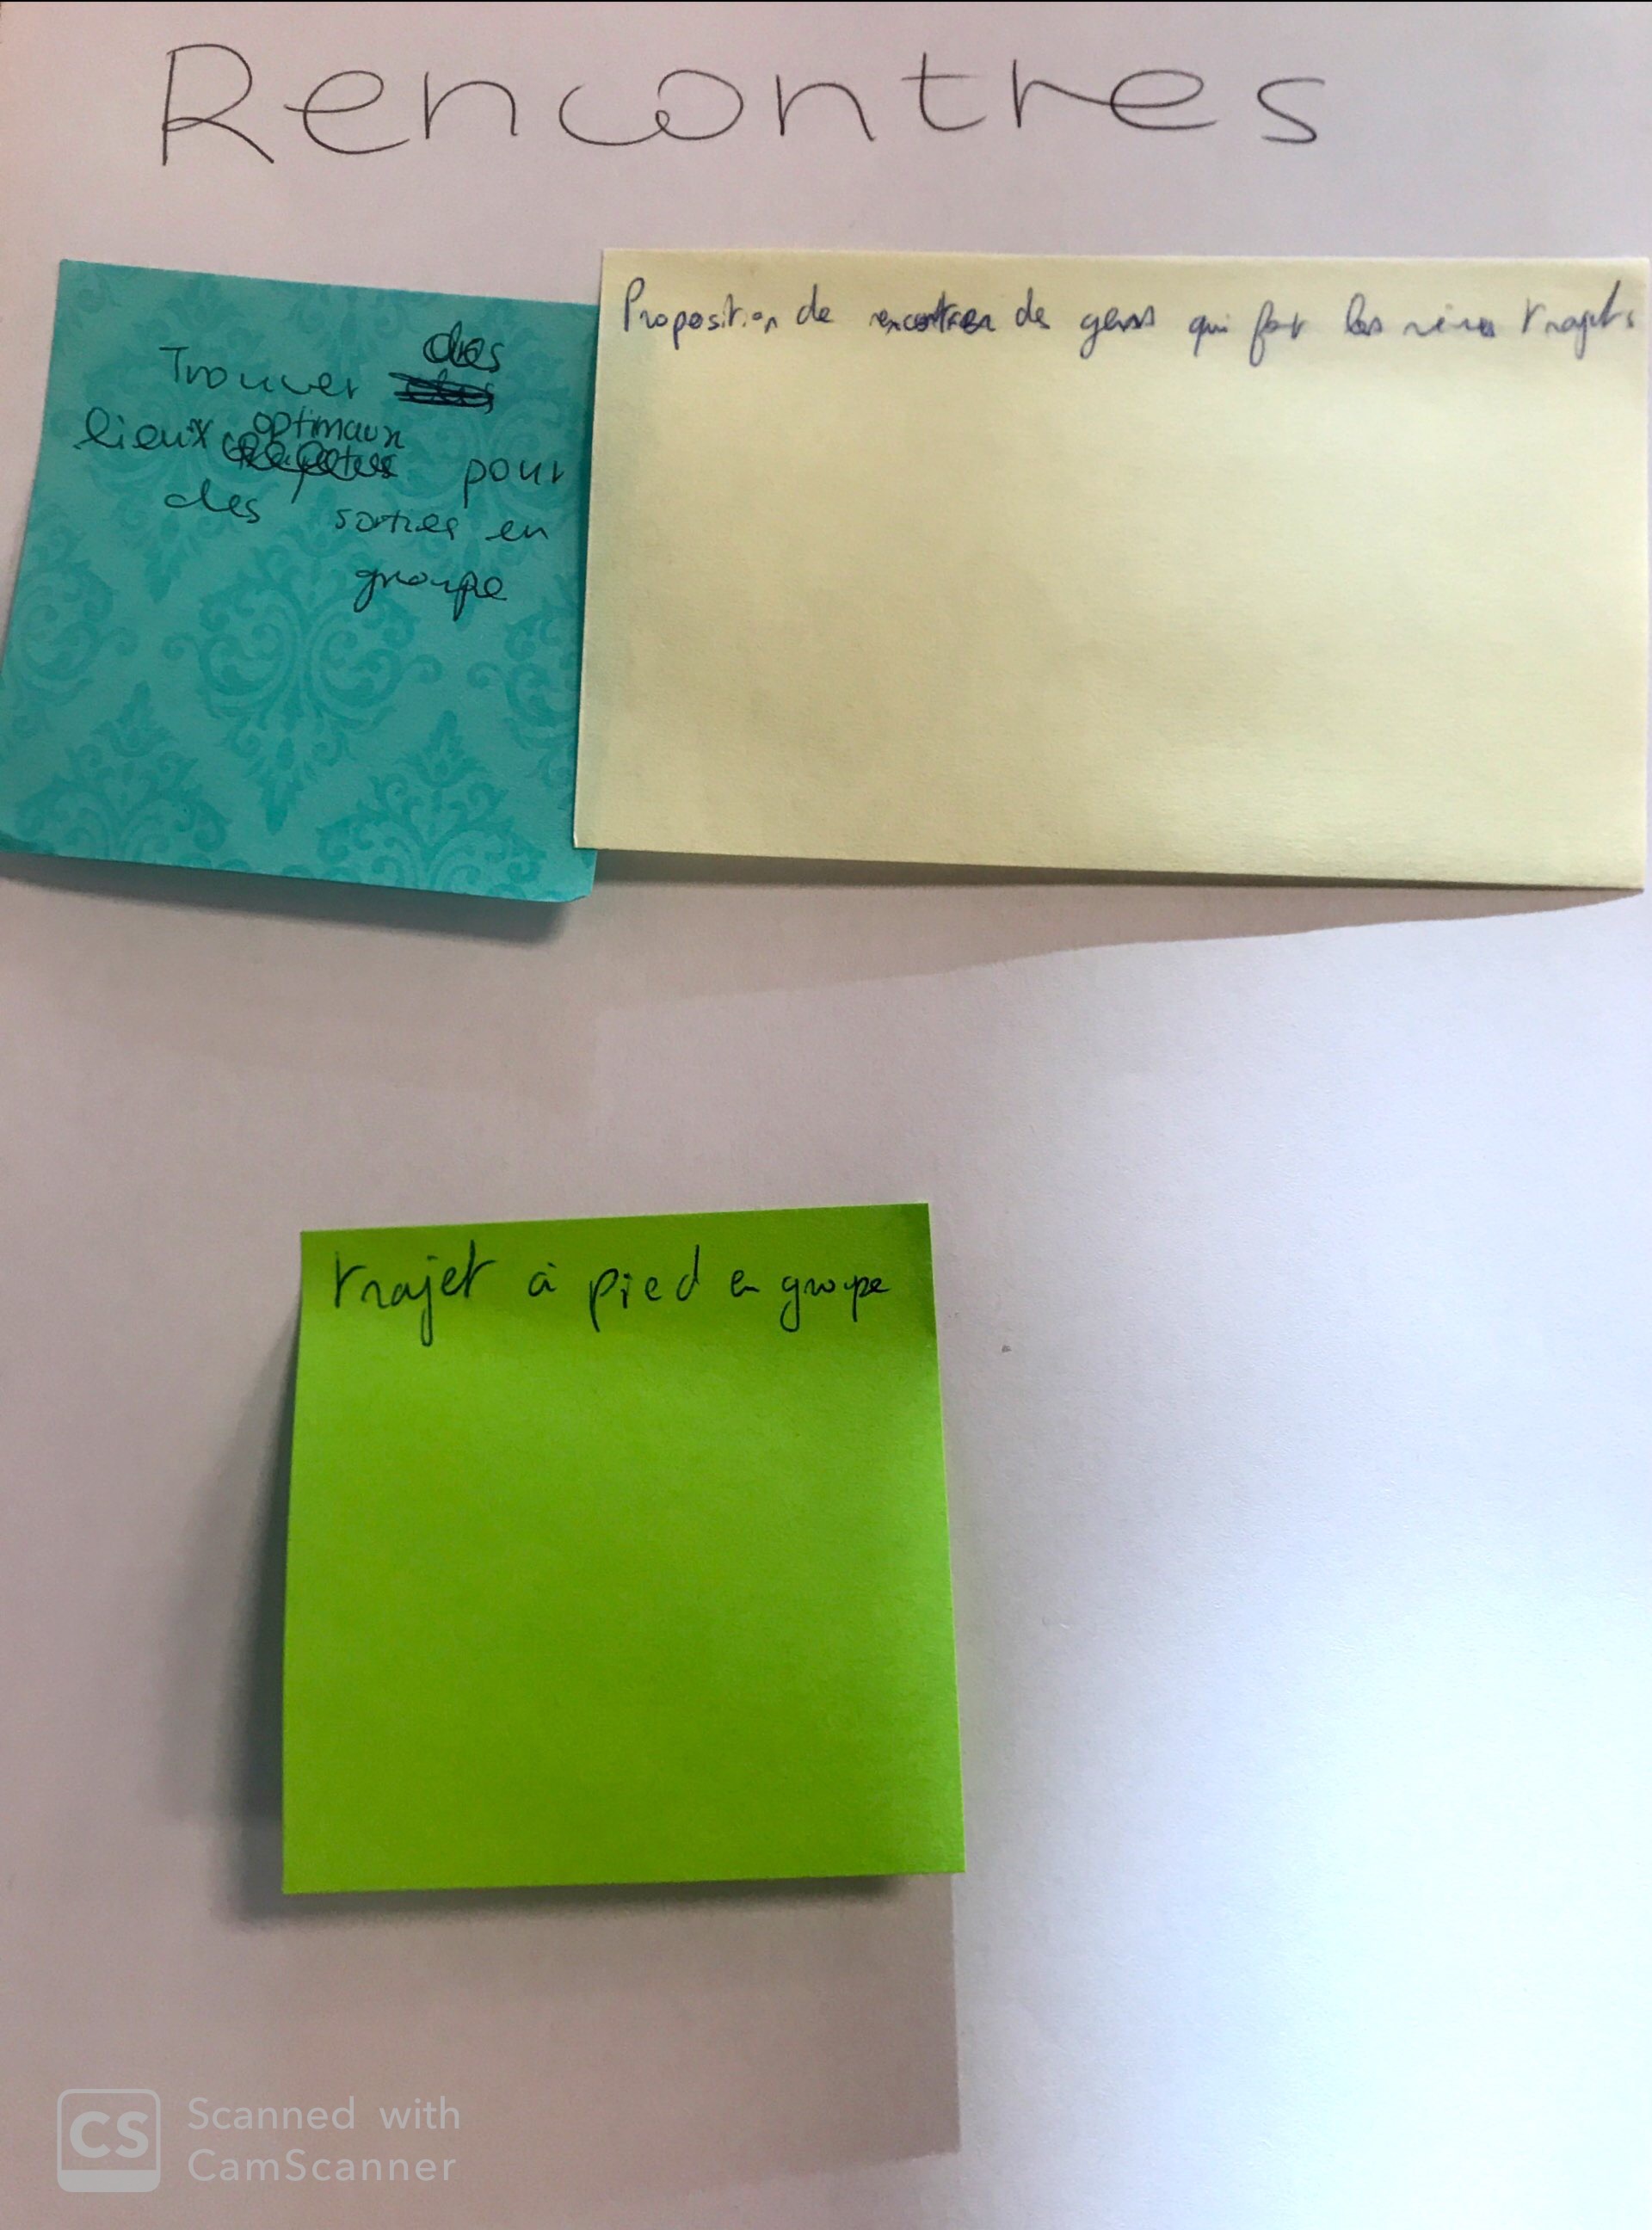 Rencontres
Trouver des
lieux optimaux pour
des sorties en
groupe
Proposition de rencontrer des gens qui font les mêmes trajets
trajet à pied en groupe
CS
Scanned with
CamScanner